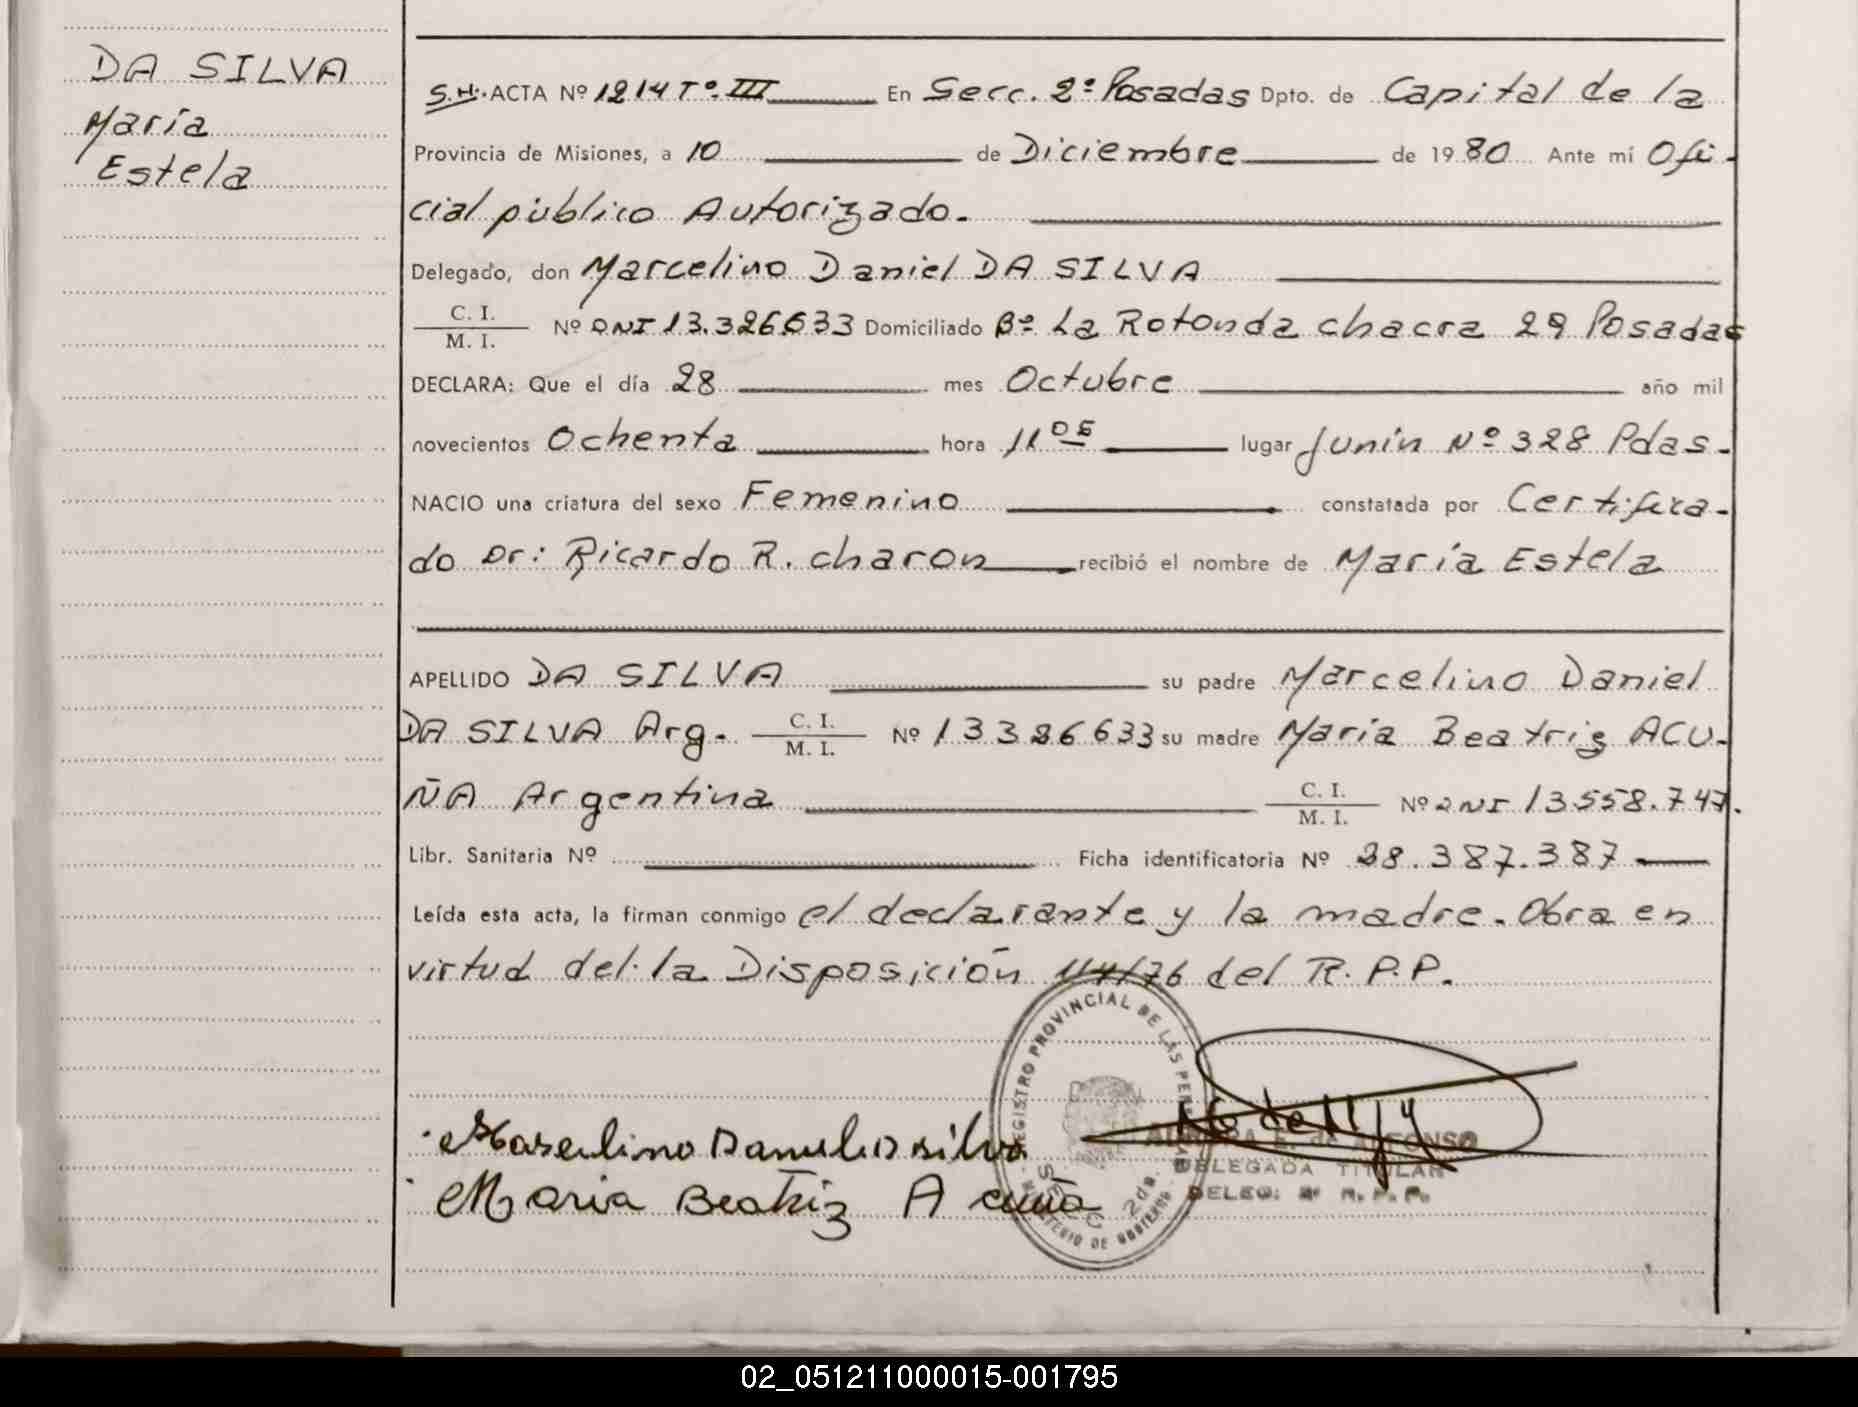 DA SILVA
María
Estela
S.H. ACTA Nº 1214 Tº. III En Secc. 2º Posadas Dpto. de Capital de la
Provincia de Misiones, a 10 de Diciembre de 1980 Ante mí Ofi-
cial público Autorizado.
Delegado, don Marcelino Daniel DA SILVA
C. I.
M. I. Nº DNI 13.326633 Domiciliado Bº La Rotonda chacra 29 Posadas
DECLARA: Que el día 28 mes Octubre año mil
novecientos Ochenta hora 11 05 lugar Junín Nº 328 Pdas-
NACIO una criatura del sexo Femenino constatada por Certifica-
do Dr: Ricardo R. charon recibió el nombre de María Estela
APELLIDO DA SILVA su padre Marcelino Daniel
DA SILVA Arg. C. I. M. I. Nº 13326633 su madre María Beatriz ACU-
ÑA Argentina C. I. M. I. Nº DNI 13.558.747.
Libr. Sanitaria Nº Ficha identificatoria Nº 28.387.387
Leída esta acta, la firman conmigo el declarante y la madre. Obra en
virtud del la Disposición 114/76 del R.P.P.
REGISTRO PROVINCIAL DE LAS PERSONAS
SECC 2da.
MINISTERIO DE GOBIERNO
Marselino Daniel Da silva
Maria Beatriz Acuña
de ALFONSO
DELEGADA TITULAR
DELEG. 2ª R. P. P.
02_051211000015-001795